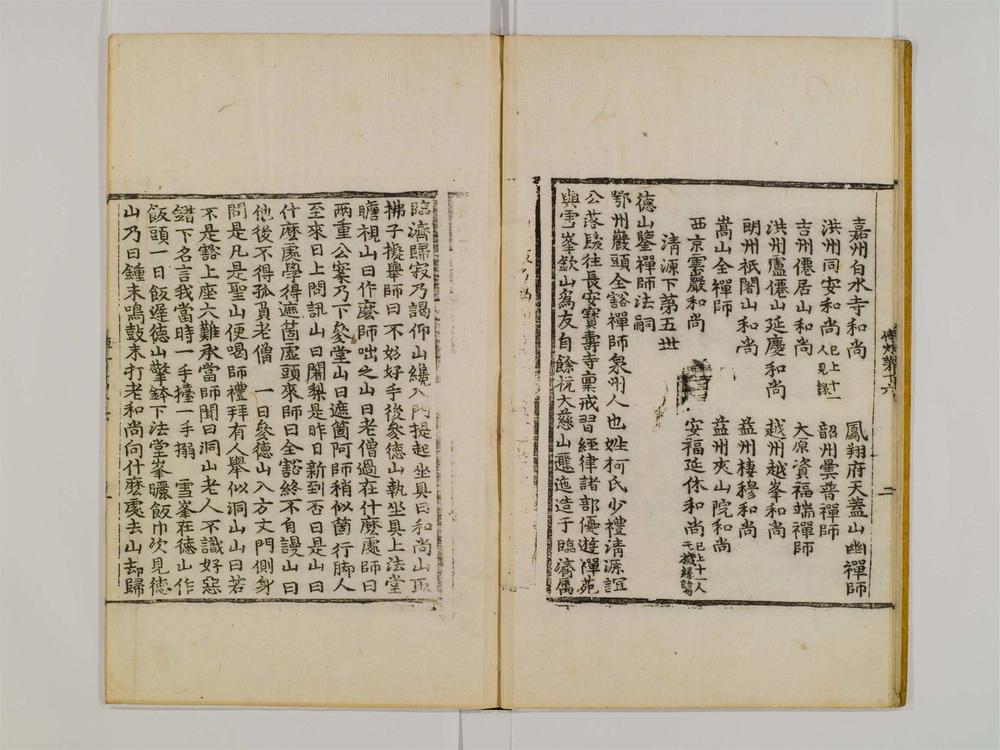 嘉州白水寺和尚　鳳翔府天蓋山幽禪師
洪州同安和尚已上十一人見錄　韶州曇普禪師
吉州僊居山和尚　大原資福端禪師
洪州盧僊山延慶和尚　越州越峯和尚
明州祇闍山和尚　益州棲穆和尚
嵩山全禪師　益州夾山院和尚
西京雲嚴和尚　安福延休和尚已上十一人
清源下第五世
德山鑒禪師法嗣
鄂州巖頭全豁禪師泉州人也姓柯氏少禮清源誼
公落髮往長安寶壽寺稟戒習經律諸部優遊禪苑
與雪峯欽山爲友自餘杭大慈山邐迤造于臨濟属
臨濟歸寂乃謁仰山纔入門提起坐具曰和尚山取
拂子擬擧師曰不好好手後參德山執坐具上法堂
瞻視山曰作麽師咄之山曰老僧過在什麽處師曰
兩重公案乃下參堂山曰遮箇阿師稍似箇行脚人
至來日上問訊山曰闍梨是昨日新到否曰是山曰
什麽處學得遮箇虛頭來師曰全豁終不自謾山曰
他後不得孤負老僧　一日參德山入方丈門側身
問是凡是聖山便喝師禮拜有人擧似洞山山曰若
不是豁上座大難承當師聞曰洞山老人不識好惡
錯下名言我當時一手擡一手搦　雪峯在德山作
飯頭一日飯遲德山擎鉢下法堂峯曬飯巾次見德
山乃曰鍾未鳴鼓未打老和尚向什麽處去山却歸